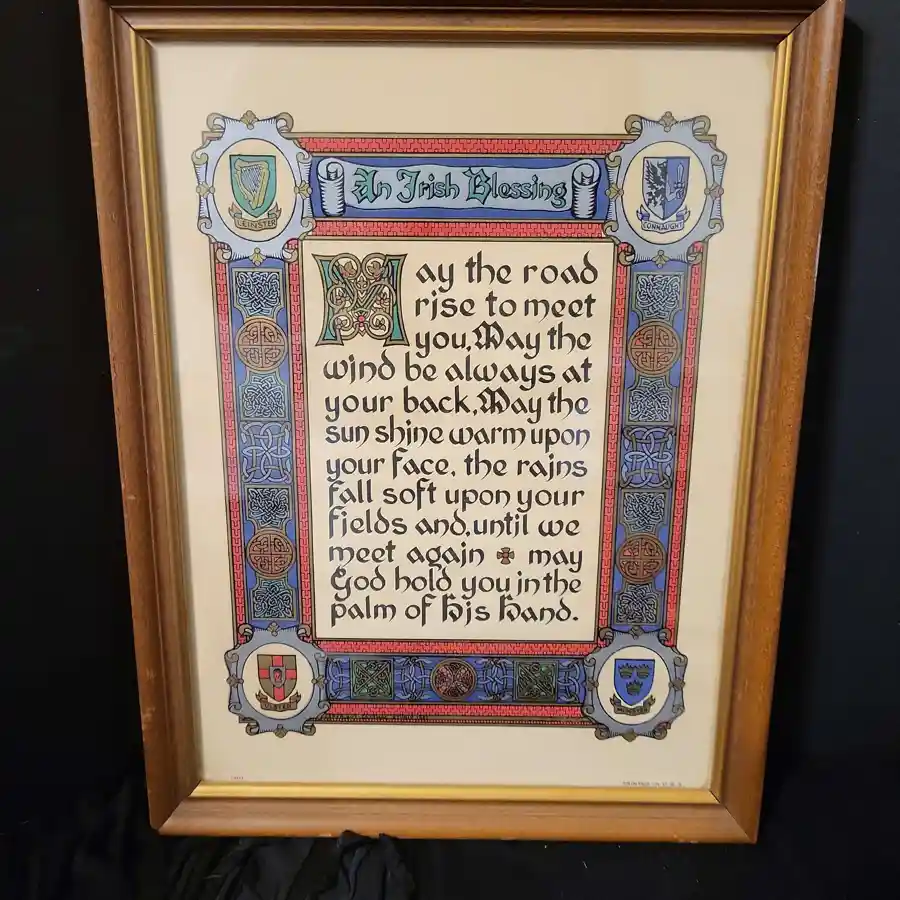 LEINSTER
An Irish Blessing
CONNAUGHT
May the road
rise to meet
you. May the
wind be always at
your back. May the
sun shine warm upon
your face, the rains
fall soft upon your
fields and, until we
meet again may
God hold you in the
palm of his hand.
ULSTER
MUNSTER